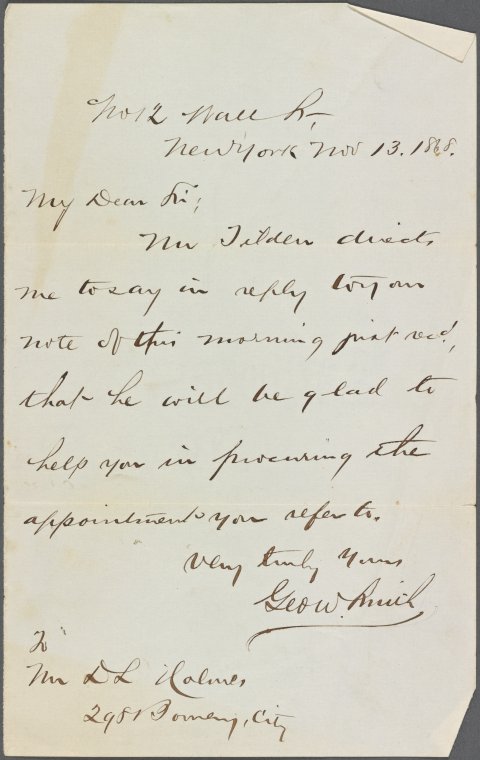 No 12 Wall St,
New York Nov 13. 1868.
My Dear Sir;
Mr Tilden directs
me to say in reply to your
note of this morning just recd,
that he will be glad to
help you in procuring the
appointment you refer to.
Very truly Yours
Geo W. Smith
To
Mr D L Holmes
298 Bowery, City